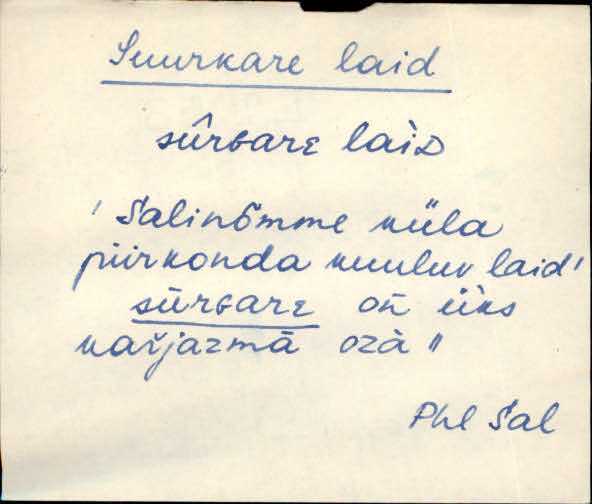 Suurkare laid
sûrɢarᴇ laìᴅ
' Salinõmme küla
piirkonda kuuluv laid'
sūrɢarᴇ on̄ üks
kar̆jazmā ozà "
Phl Sal